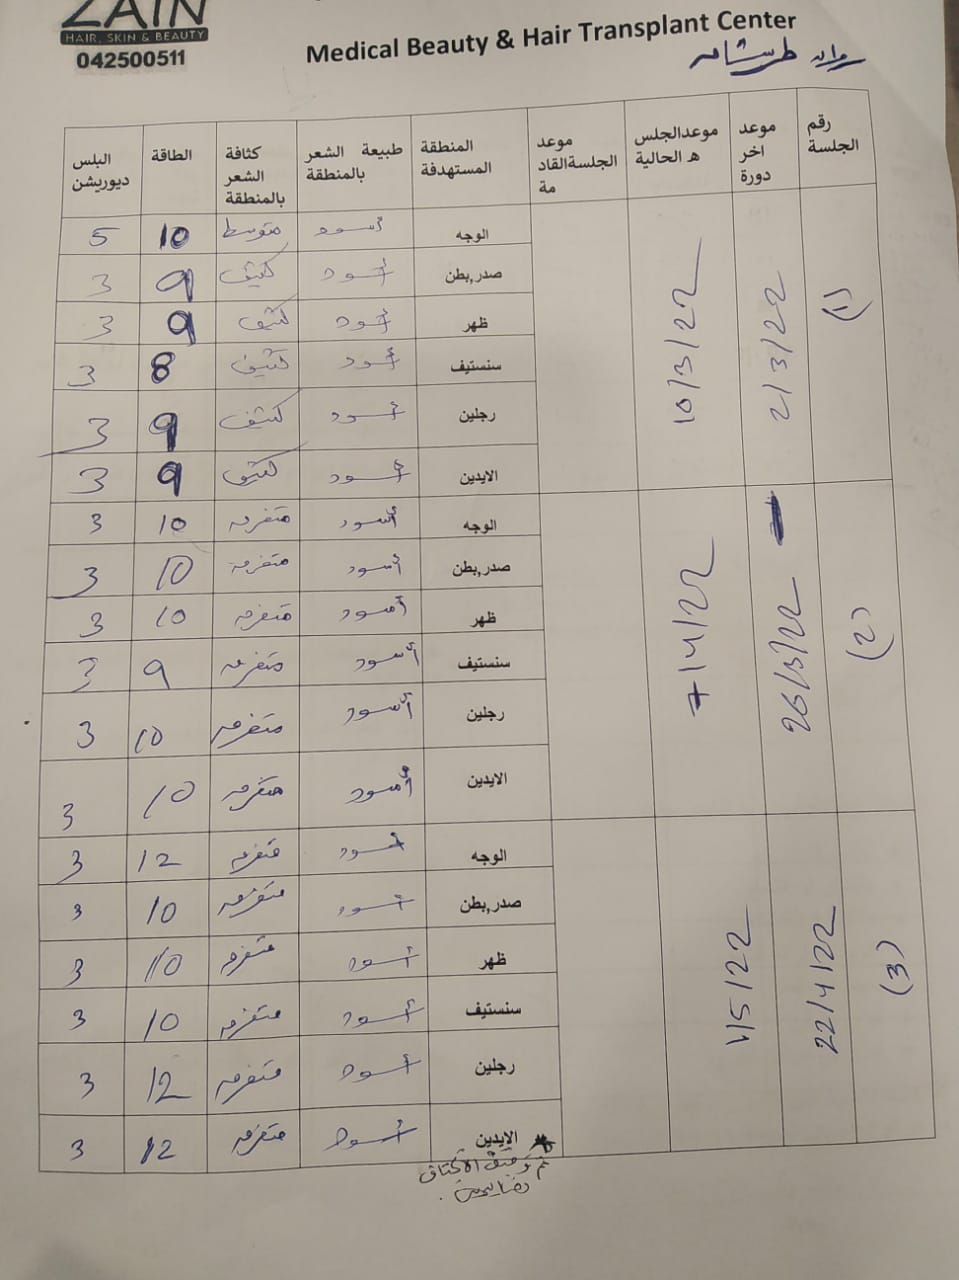 ZAIN
HAIR, SKIN & BEAUTY
042500511
Medical Beauty & Hair Transplant Center
رقم الجلسة | موعد اخر دورة | موعدالجلسه الحالية | موعد الجلسةالقادمة | المنطقة المستهدفة | طبيعة الشعر بالمنطقة | كثافة الشعر بالمنطقة | الطاقة | البلس ديوريشن
(1) | 2/3/22 | 10/3/22 | الوجه | أسود | متوسط | 10 | 5
صدر,بطن | أسود | كثيف | 9 | 3
ظهر | أسود | كثيف | 9 | 3
سنستيف | أسود | كثيف | 8 | 3
رجلين | أسود | كثيف | 9 | 3
الايدين | أسود | كثيف | 9 | 3
(2) | 26/3/22 | 7/4/22 | الوجه | أسود | متفرقه | 10 | 3
صدر,بطن | أسود | متفرقه | 10 | 3
ظهر | أسود | متفرقه | 10 | 3
سنستيف | أسود | متفرقه | 9 | 3
رجلين | أسود | متفرقه | 10 | 3
الايدين | أسود | متفرقه | 10 | 3
(3) | 22/4/22 | 1/5/22 | الوجه | أسود | متفرقه | 12 | 3
صدر,بطن | أسود | متفرقه | 10 | 3
ظهر | أسود | متفرقه | 10 | 3
سنستيف | أسود | متفرقه | 10 | 3
رجلين | أسود | متفرقه | 12 | 3
الايدين | أسود | متفرقه | 12 | 3